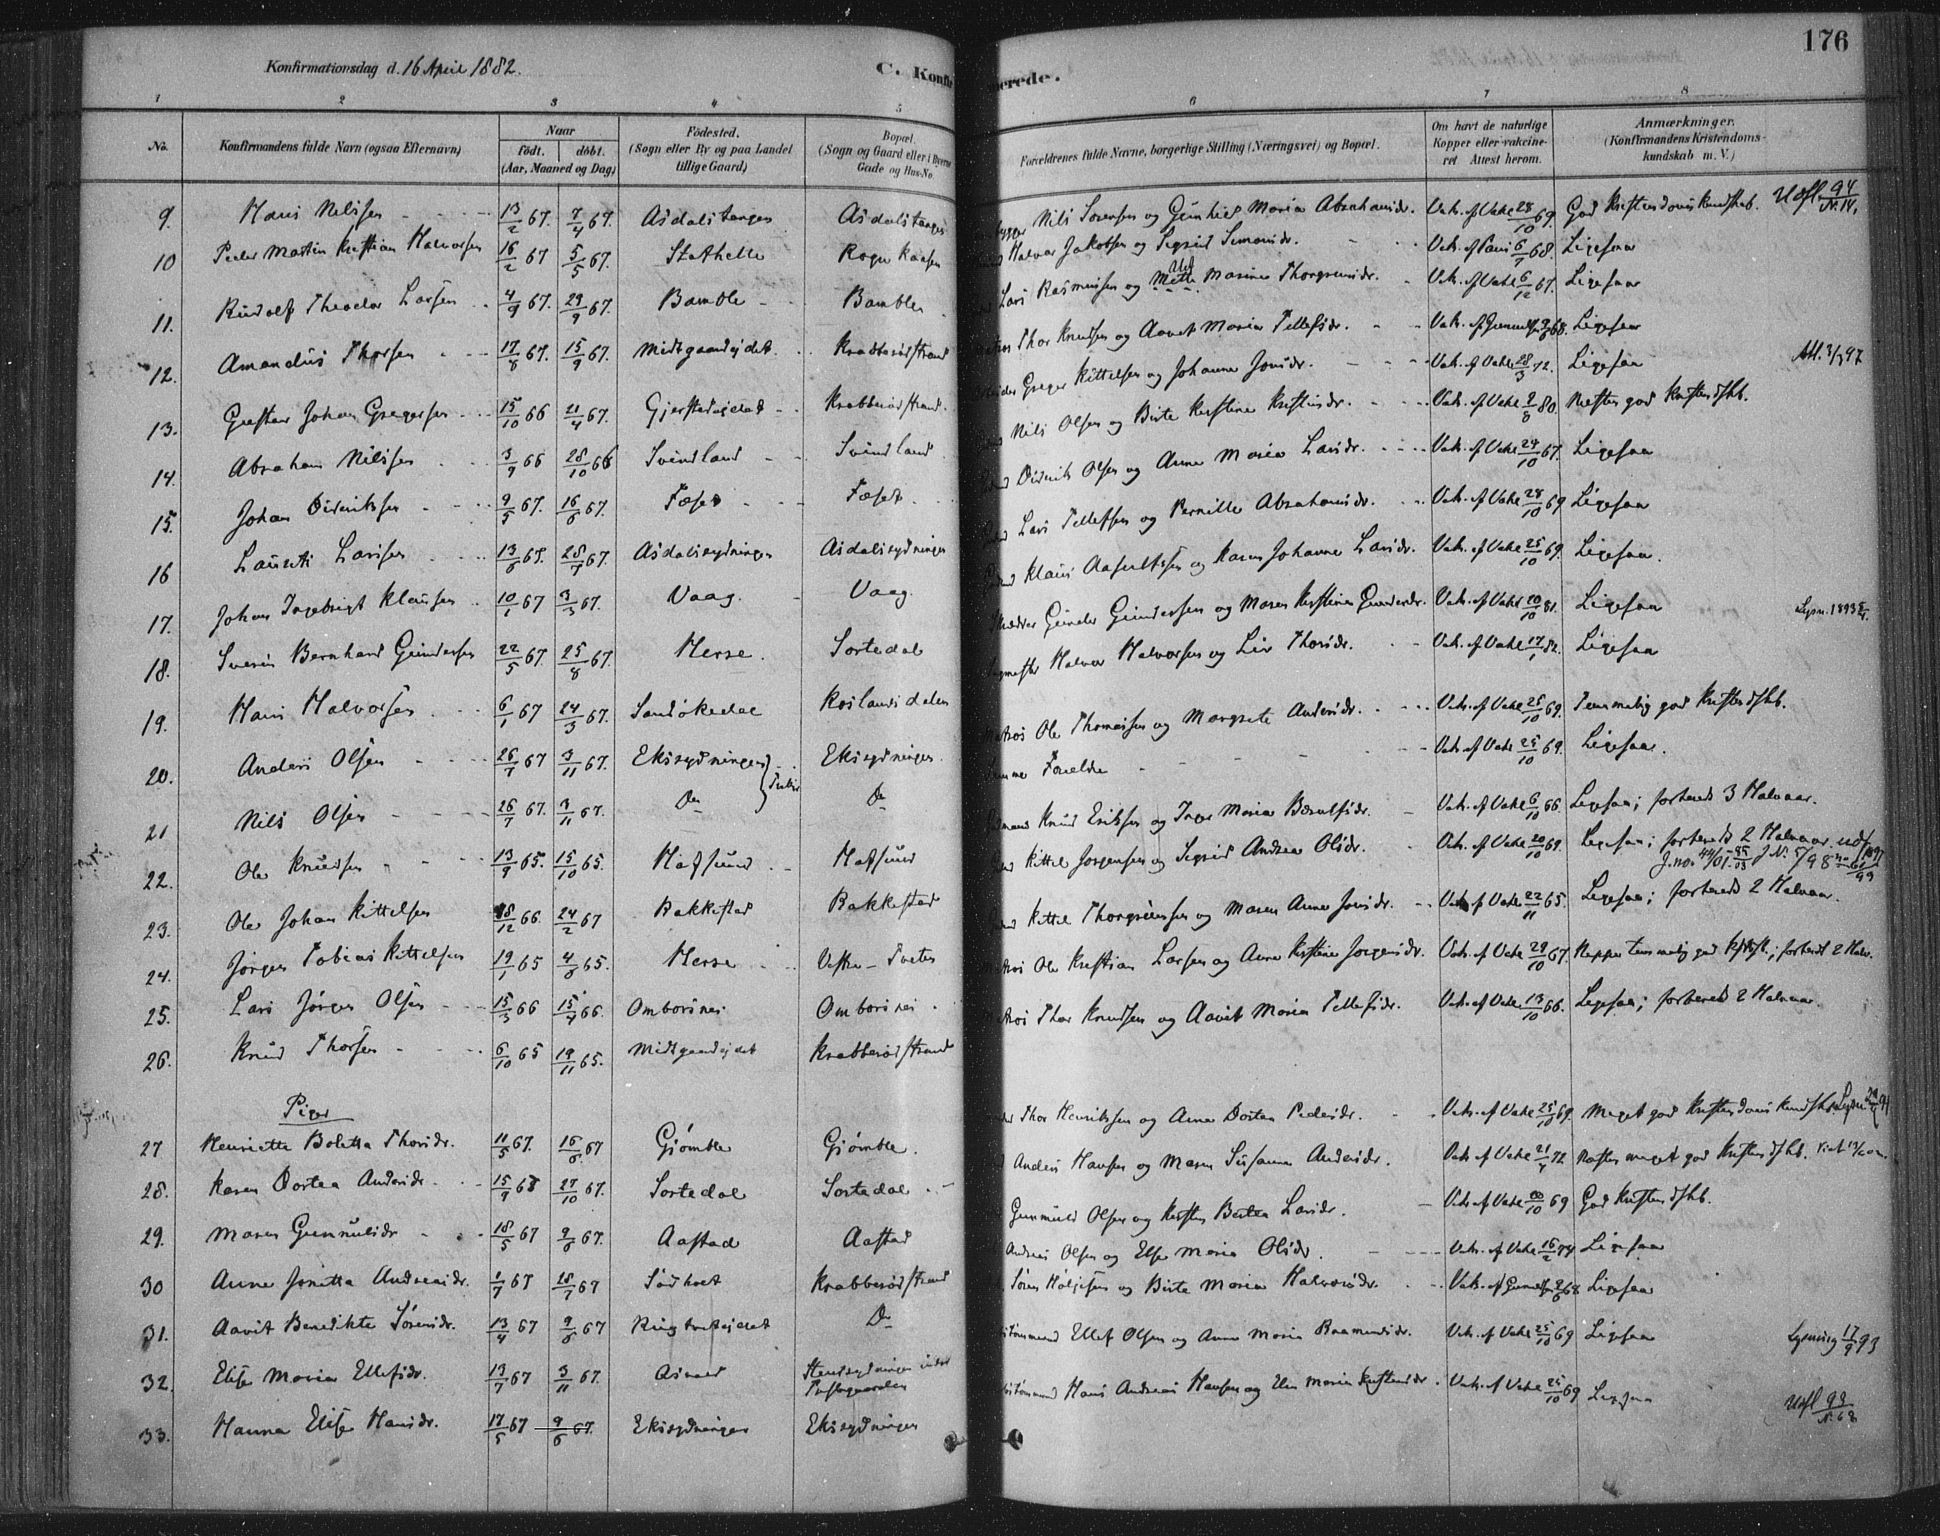 176
Konfirmationsdag d. 16 April 1882.
C. Konfir
merede.
1 2 3 4 5 6 7 8
No.
Konfirmandens fulde Navn (ogsaa Efternavn)
Naar
født. døbt.
(Aar, Maaned og Dag)
Fødested.
(Sogn eller By og paa Landet
tillige Gaard)
Bopæl.
(Sogn og Gaard eller i Byerne
Gade og Hus-No.
Forældrenes fulde Navne, borgerlige Stilling (Næringsvei) og Bopæl.
Om havt de naturlige
Kopper eller vakcine-
ret Attest herom.
Anmærkninger.
(Konfirmandens Kristendoms-
kundskab m. V.)
9. Hans Nilssen 13/2 67. 7/4 67. Asdalstangen Asdalstangen Nils Sørensen og Gunhild Maria Abrahamsdr. Vak. af Vahl 28/10 69. God Kristendomskundskab. Udfl 94/N. 14.
10 Peder Martin Kristian Halvorsen 16/2 67 5/5 67. Stathelle Rogn Kaasen Halvor Jakobsen og Sigrid Simonsdr. 6/7 68. Ligesaa
11. Rudolf Theodor Larsen 4/9 67. 29/9 67. Bamble Bamble Lars Rasmussen og Mette Marine Thorgrimsdr. Vak. af Vahl 6/12 67. Ligesaa
12. Amandus Thorsen 17/8 67. 15/9 67. Midtgaardejdet Krabberødstrand Thor Knudsen og Aavet Maria Tellefsdr. Ligesaa Att. 3/3 97
13. Gustav Johan Gregersen 15/10 66 21/4 67. Krabberødstrand Greger Kittelsen og Johanne Jonsdr. Vak. af Vahl 28/3 72. Ligesaa
14. Abraham Nilssen 3/9 66 28/10 66 Svindland Svindland Nils Olsen og Birte Kirstine Kristensdr. Vak. af Vahl 2/8 80 Næsten god Kristendskb.
15. Johan Didriksen 9/5 67. 16/6 67. Foset Foset Didrik Olsen og Anne Maria Larsdr. Vak. af Vahl 24/10 67. Ligesaa
16 Laurits Larssen 13/6 67. 28/7 67. Asdalsrydningen Asdalsrydningen Lars Tellefsen og Pernille Abrahamsdr. Vak. af Vahl 28/10 69 Ligesaa
17. Johan Ingebrigt Klausen 10/1 67 3/3 67. Vaag. Vaag. Klaus Aasultsen og Karen Johanne Larsdr. Vak. af Vahl 25/10 69. Ligesaa.
18. Severin Bernhard Gundersen 22/5 67. 25/8 67. Herre. Sortedal Gunder Gundersen og Maren Kirstine Gundersdr. Vak. af Vahl 20/10 81. Ligesaa
19. Hans Halvorsen 6/1 67 24/3 67. Sandøkedal Roslandsdalen Halvor Halvorsen og Liv Thorsdr. Vak. af Vahl 17/1 82. Ligesaa
20. Anders Olsen 26/7 67 3/11 67. Eksrydningen Eksrydningen. Ole Thomassen og Margrete Andersdr. Vak. af Vahl 25/10 69. Temmelig god Kristendskb.
21 Nils Olsen 26/7 67. 3/11 67. Do Do Samme Forældre Vak. af Vahl 25/10 69. Ligesaa.
22. Ole Knudsen 13/9 65. 15/10 65. Hafsund Hafsund Knud Eriksen og Inger Maria Værulfsdr. Vak. af Vahl 6/10 66 Ligesaa; forberedt 3 Halvaar.
23. Ole Johan Kittelsen 18/12 66. 24/2 67 Bakkestad Bakkestad Kittel Jørgensen og Sigrid Andrea Olsdr. Vak. af Vahl 20/10 69. Ligesaa; forberedt 2 Halvaar
24. Jørgen Tobias Kittelsen 19/1 65 4/6 65. Herre Vestre Tveten Kittel Thorgrimsen og Maren Anne Jonsdr. Vak af Vahl 22/11 65. Ligesaa; forberedt 2 Halvaar.
25. Lars Jørgen Olsen 15/3 66 15/7 66. Omborsnes Omborsnes Ole Kristian Larsen og Anne Kirstine Jørgensdr. Vak. af Vahl 29/10 67. Neppe temmelig god; forberedt 2 Halv.
26. Knud Thorsen 6/10 65 19/11 65. Midtgaardejdet Krabberødstrand Thor Knudsen og Aavet Maria Tellefsdr. Vak. af Vahl 13/10 66. Ligesaa; forberedt 2 Halvaar.
Piger
27 Henriette Boletta Thorsdr. 11/5 67. 16/6 67 Gjømble Gjømble. Thor Henriksen og Anne Dortea Pedersdr. Vak. af Vahl 25/10 69. Meget god Kristendomskundskab
28. Karen Dortea Andersdr. 15/9 67 27/10 67. Sortedal Sortedal Anders Hansen og Maren Susanne Andersdr. Næsten meget god Kristendskb.
29. Maren Gunnulsdr 18/5 67 9/6 67. Aastad Aastad Gunnuld Olsen og Kirsten Bertea Larsdr. Vak. af Vahl 20/10 69 God Kristendskb.
30 Anne Jonetta Andreasdr. 1/7 67 18/7 67 Krabberødstrand Andreas Olsen og Else Maria Olsdr. Vak. af Vahl 16/2 74 Ligesaa
31. Aavet Benedikte Sørensdr. 13/4 67 9/6 67 Do Søren Høljesen og Birte Maria Halvorsdr. Ligesaa
32. Elise Maria Ellefsdr. 13/7 67 3/11 67. Ellef Olsen og Anne Maria Raamundsdr. Vak. af Vahl 25/10 69 Ligesaa Lysning 17/9 93
33. Hanna Elise Hansdr. 17/5 67 9/6 67. Eksrydningen Eksrydningen Hans Andreas Hansen og Elen Maria Kristensdr. Vak. af Vahl 25/10 69 Ligesaa Udfl 93/N. 68